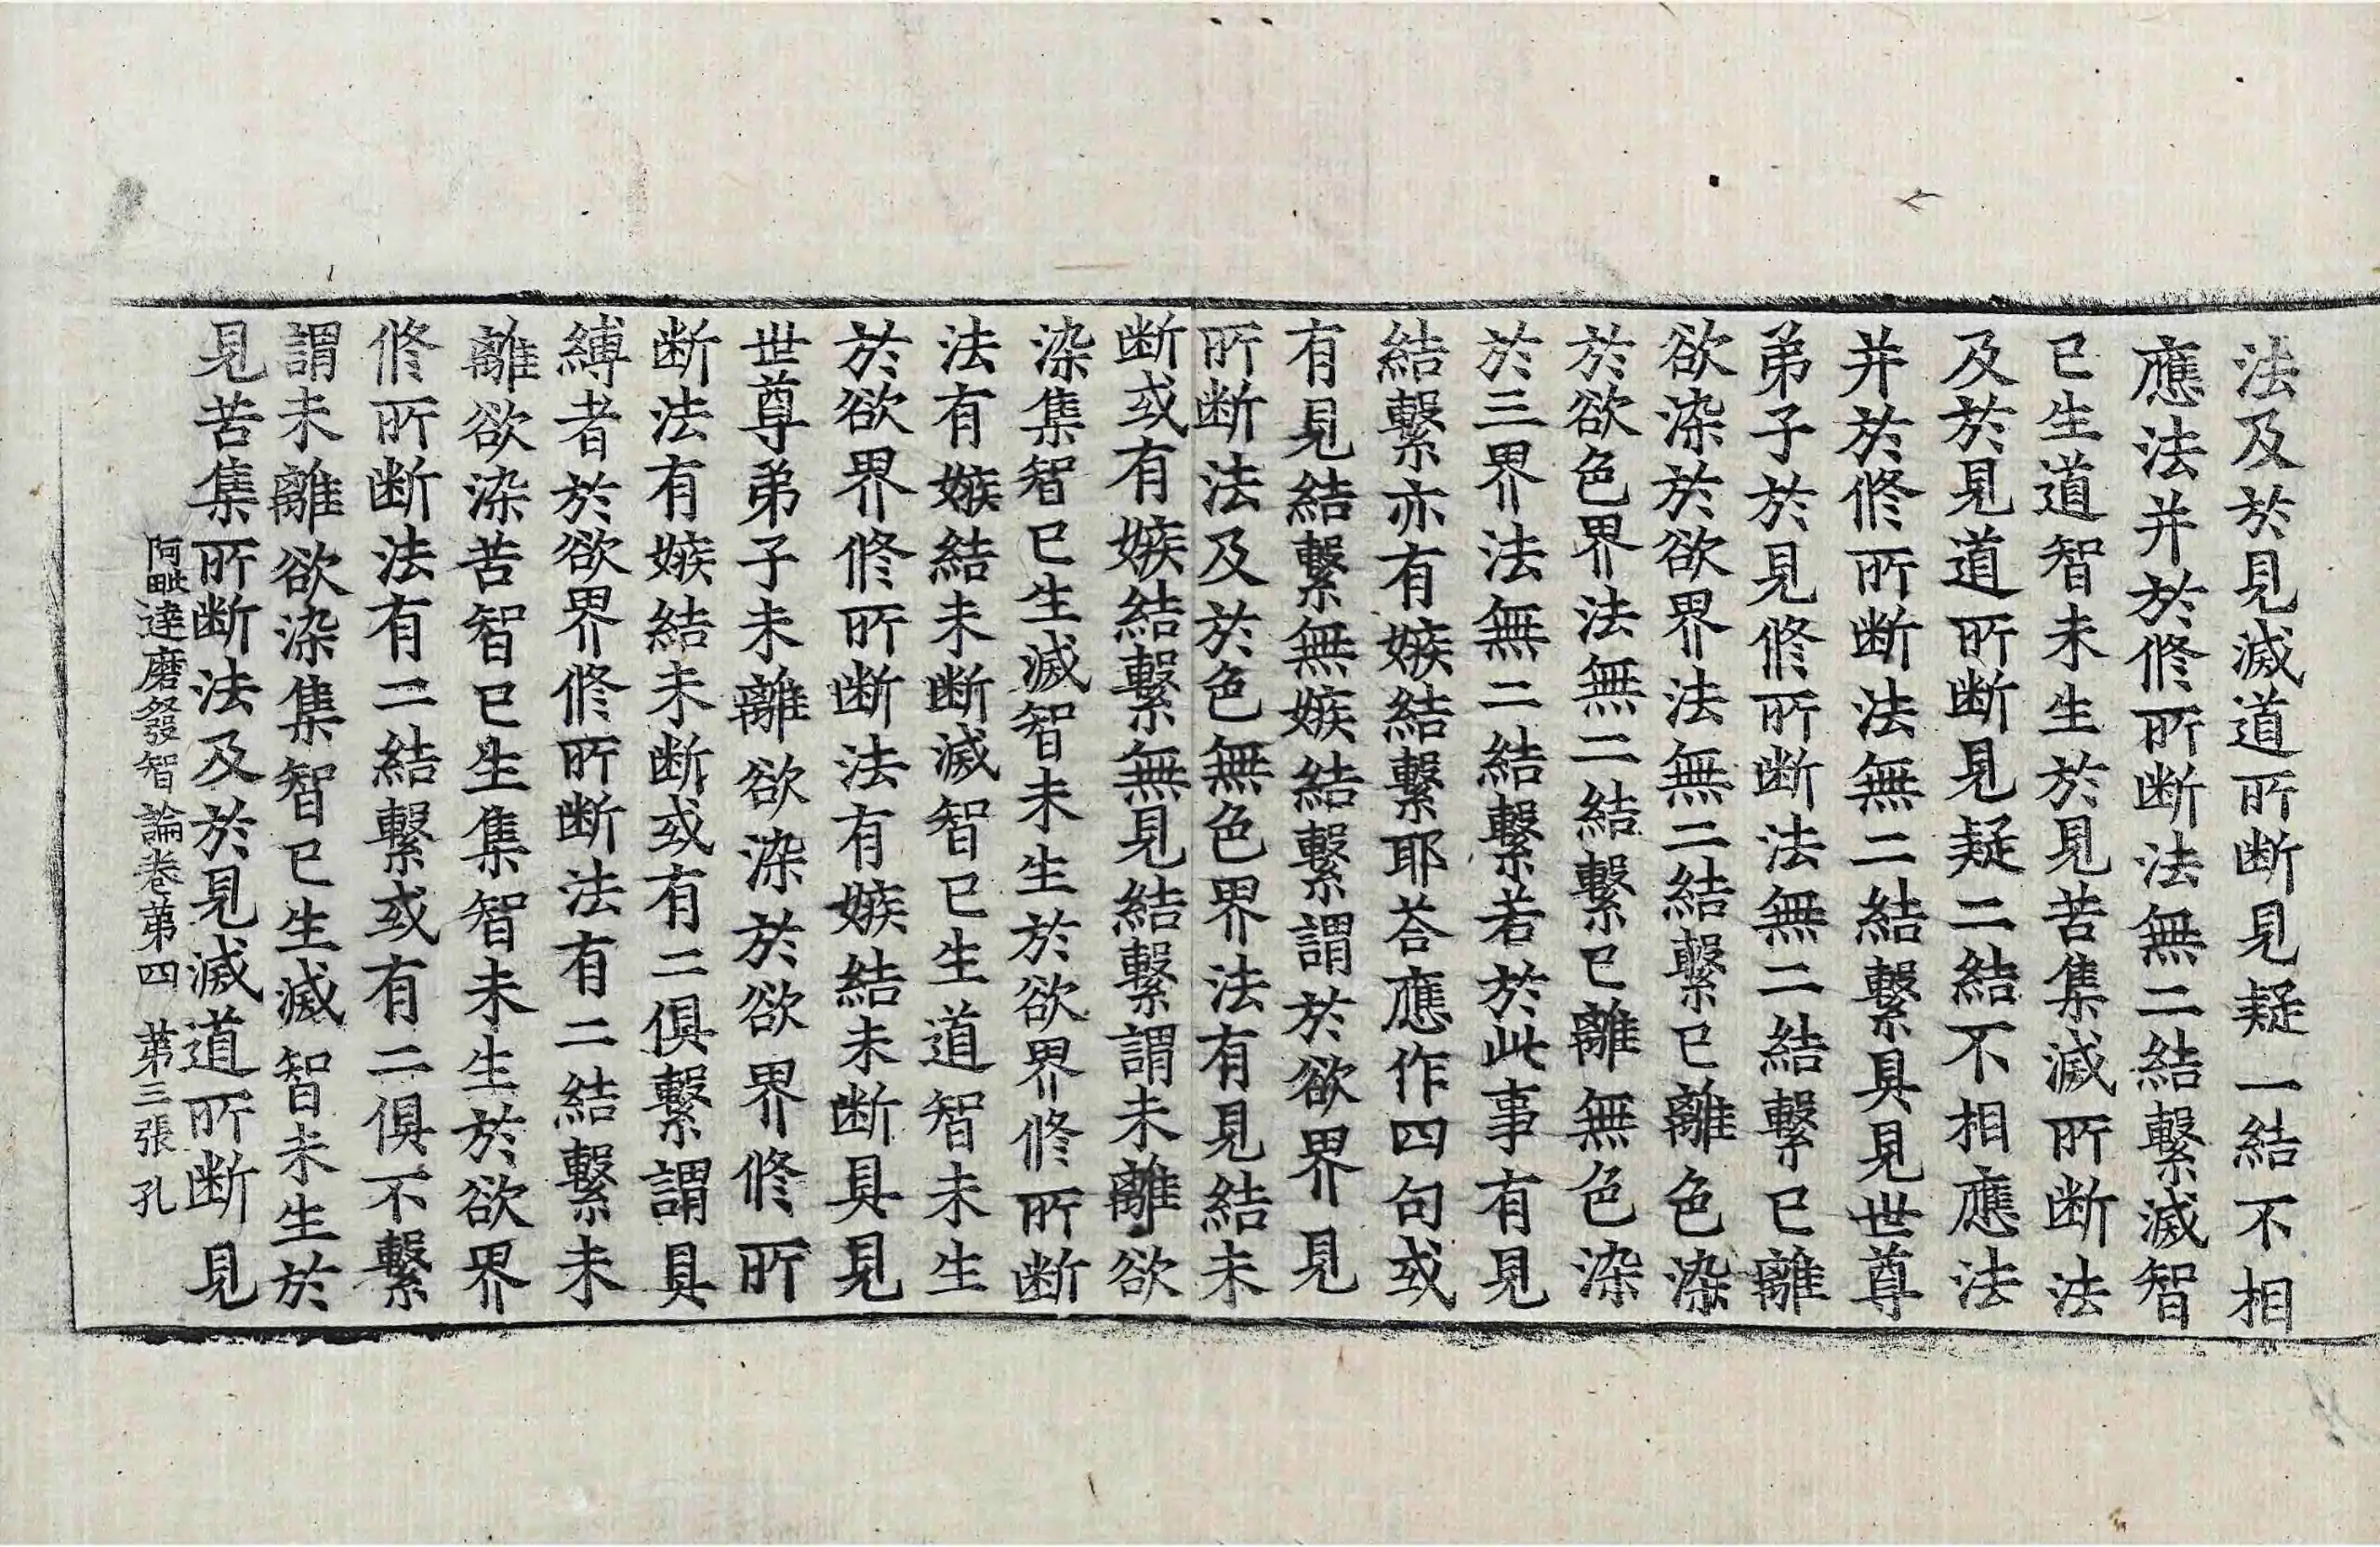 法及於見滅道所断見疑一結不相
應法并於修所断法無二結繫滅智
已生道智未生於見苦集滅所断法
及於見道所断見疑二結不相應法
并於修所断法無二結繫具見世尊
弟子於見修所断法無二結繫已離
欲染於欲界法無二結繫已離色染
於欲色界法無二結繫已離無色染
於三界法無二結繫若於此事有見
結繫亦有嫉結繫耶荅應作四句或
有見結繫無嫉結繫謂於欲界見
所断法及於色無色界法有見結未
断或有嫉結繫無見結繫謂未離欲
染集智已生滅智未生於欲界修所断
法有嫉結未断滅智已生道智未生
於欲界修所断法有嫉結未断具見
世尊弟子未離欲染於欲界修所
断法有嫉結未断或有二俱繫謂具
縛者於欲界修所断法有二結繫未
離欲染苦智已生集智未生於欲界
修所断法有二結繫或有二俱不繫
謂未離欲染集智已生滅智未生於
見苦集所断法及於見滅道所断見
阿毗達磨發智論卷第四 第三張 孔